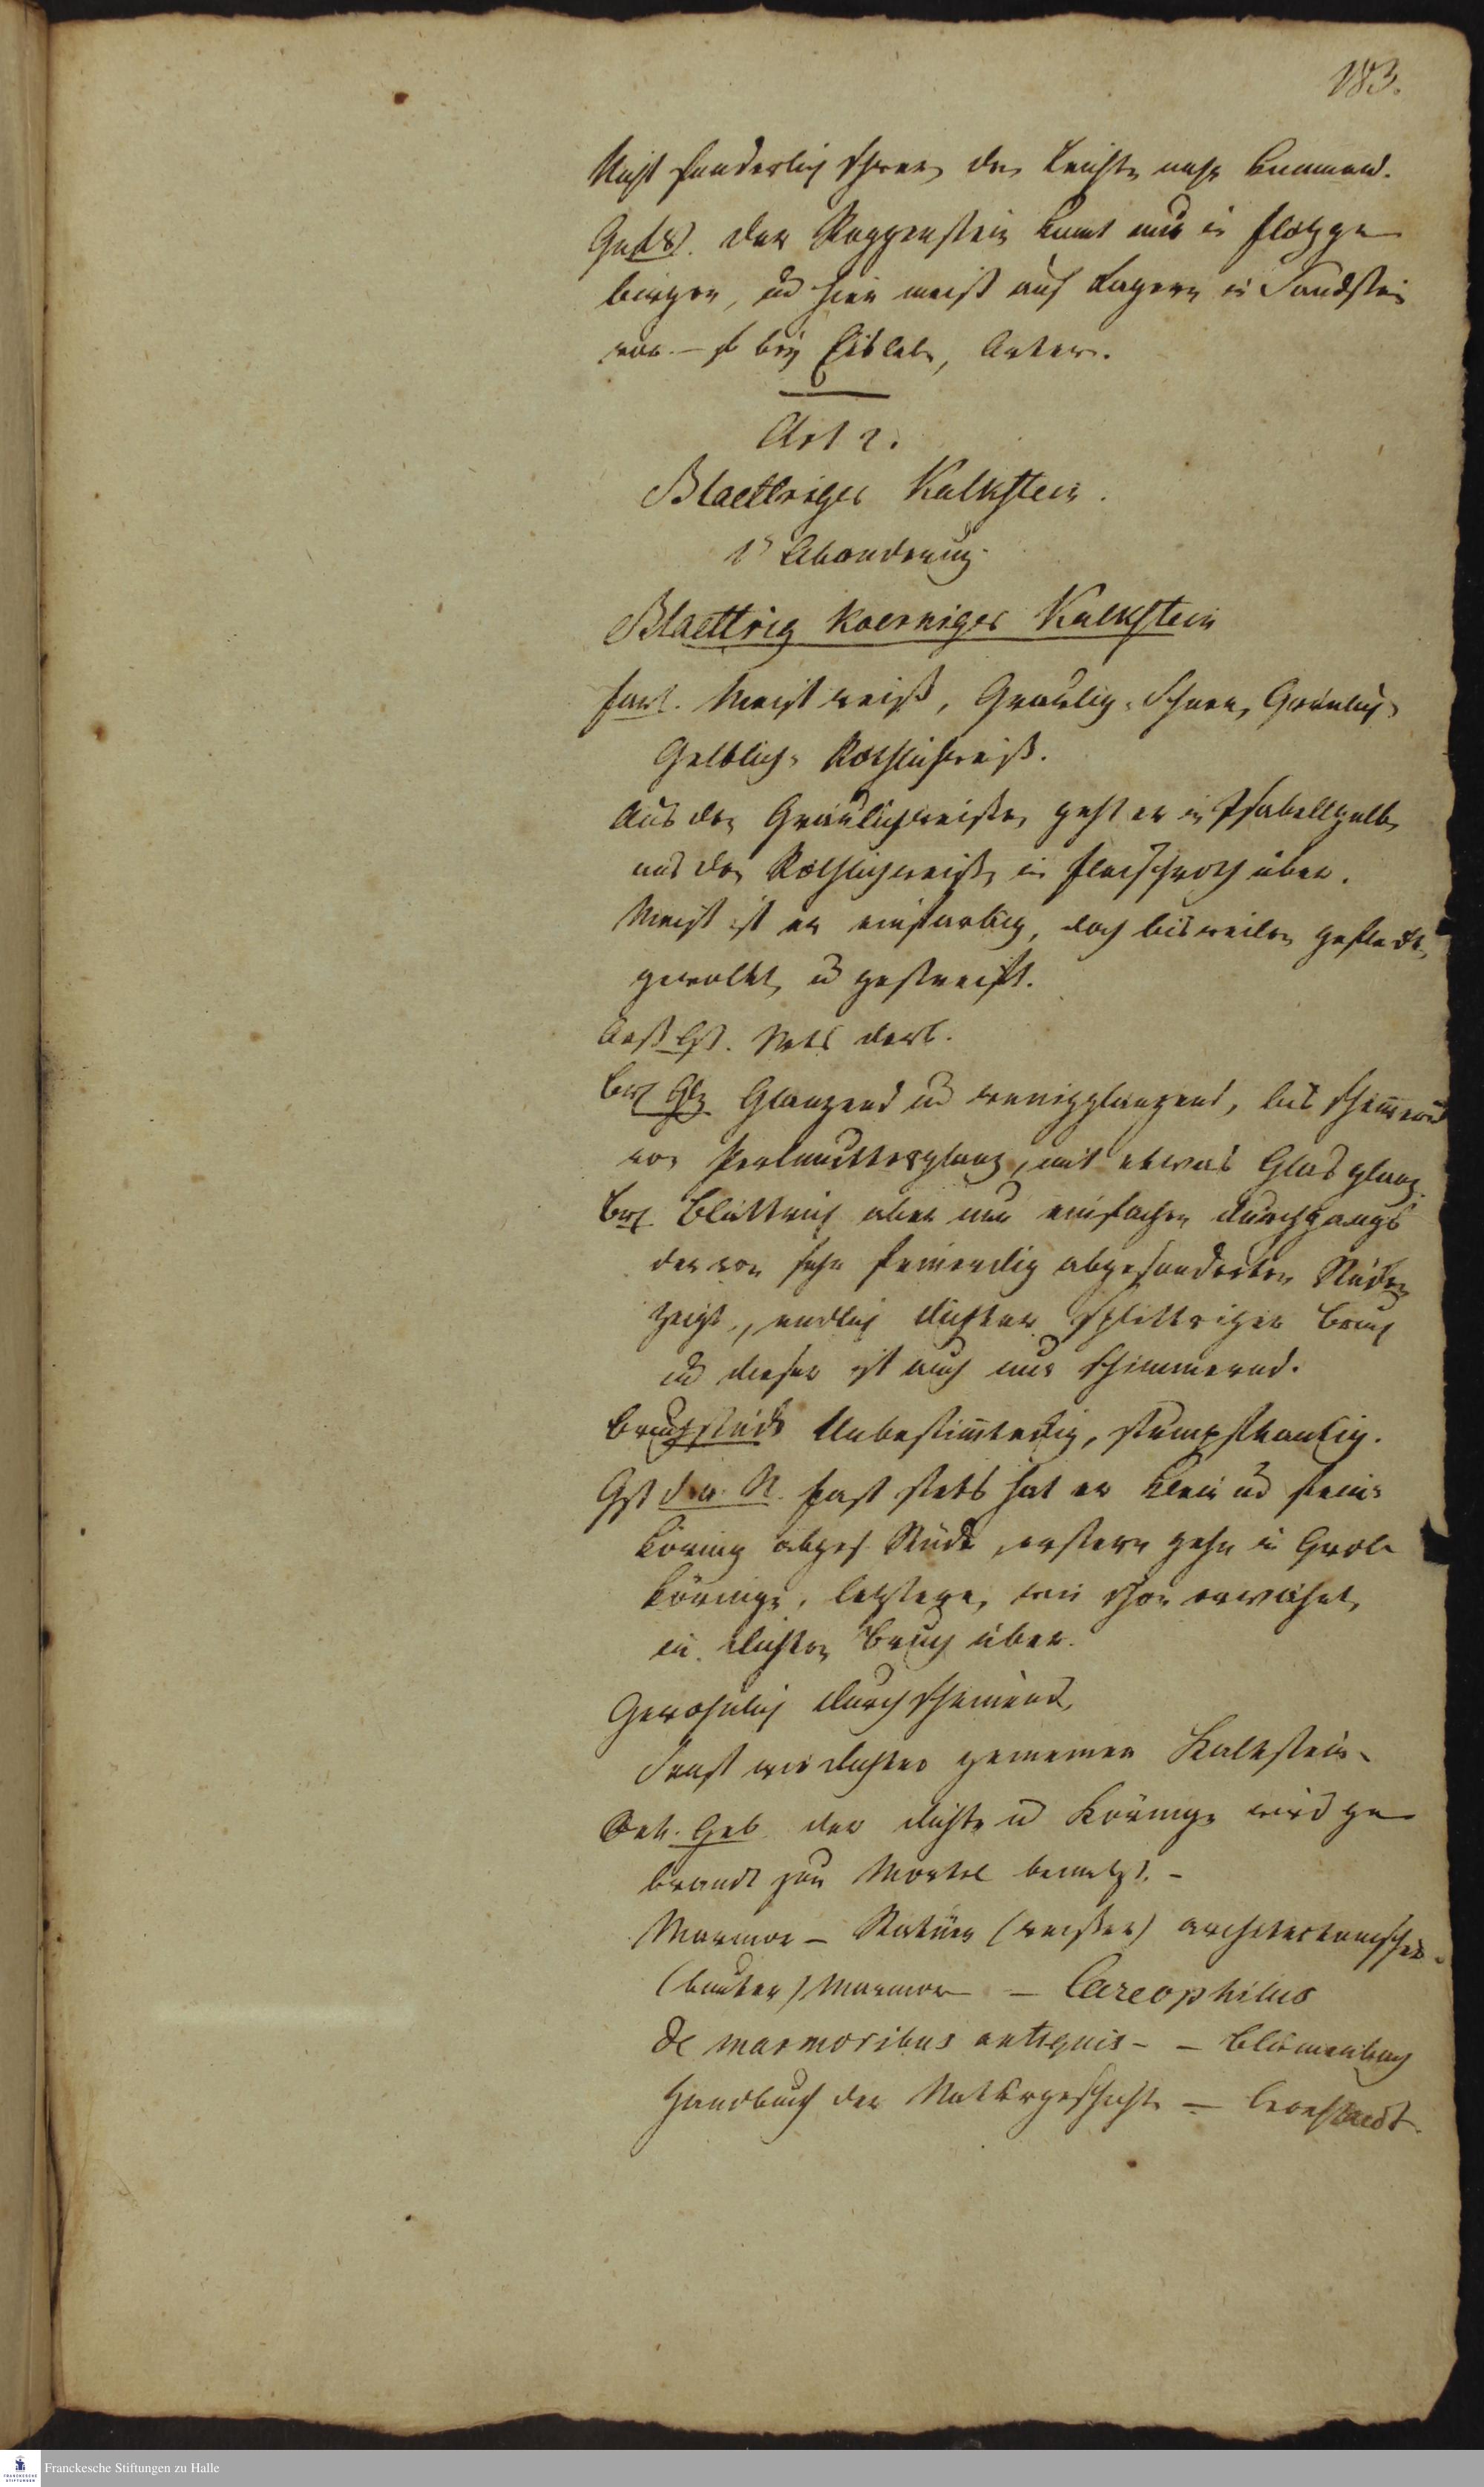 183.
Nicht sonderlich schwer, dem Leichten nahe kommend.
Der Roggenstein komt nur in Flözge
birgen, und hier meist auf Lagern in Sandstein
vor. – bey Eisleben, Artern.
Art 2.
Blaettriger Kalkstein.
1e Abænderung.
Blaettrig koerniger Kalkstein
Farb. Meist weiß, Graulich, Schnee, Grünlich,
Gelblich, Röthlichweiß.
Aus dem Graulichweißen geht er in Isabellgelb,
aus dem Röthlichweißen in Fleischroth über.
Meist ist er einfarbig, doch bisweilen gefleckt,
gewolkt, u gestreift.
Gest. Stets derb.
Br Glz Glänzend und wenigglänzend, bis schimernd
von Perlmutterglanz, mit etwas Glasglanz.
Br. Blättrich aber nur einfachen Durchgangs
der von sehr abgesonderten Stücken
zeigt, endlich dichter splittriger Bruch
und dieser ist auch nur schimmernd.
Bruchstücke Unbestimteckig, stumpfkantig.
Gst d. a. St. Fast stets hat er klein und fein
körnig abges. Stücke, erstere gehn in Grob
körnige, letztere, wie schon erwähnt,
in dichten Bruch über.
Gewöhnlich durchscheinend,
Sonst wie dichter gemeiner Kalkstein.
Geb der dichte u körnige wird ge
brandt zum Mörtel benutzt. –
Marmor – Statüen (weißer) architectonischer
(bunter) Marmor – Careophilus
de marmoribus antiquis – – Blumenbach
Handbuch der Naturgeschichte –
Franckesche Stiftungen zu Halle